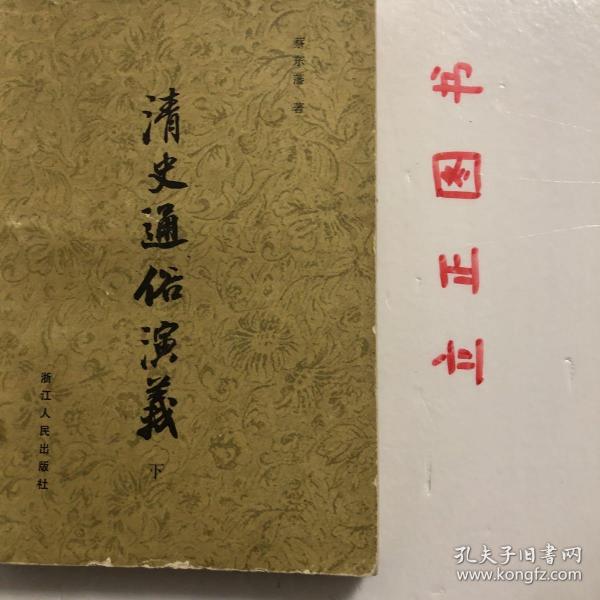 蔡东藩 著
清史通俗演義
下
浙江人民出版社
立正图书
孔夫子旧书网
www.kongfz.com